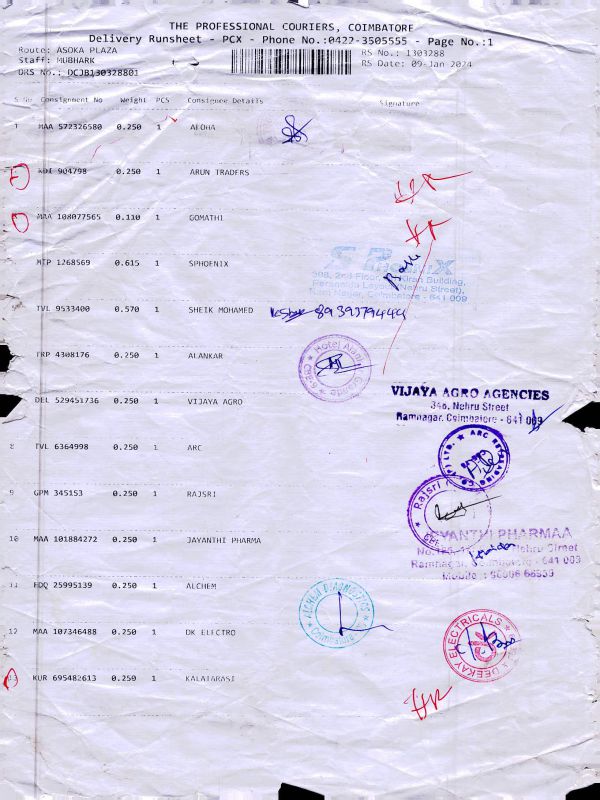 THE PROFESSIONAL COURIERS, COIMBATORE
Delivery Runsheet - PCX - Phone No.:0422-3505555 - Page No.:1
Route: ASOKA PLAZA
RS No.: 1303288
Staff: MUBHARK
RS Date: 09-Jan 2024
DRS No.: DCJB130328801
Consignment No Weight PCS Consignee Details Signature
MAA 572326580 0.250 1 ALOHA
KDI 904798 0.250 1 ARUN TRADERS
MAA 108077565 0.110 1 GOMATHI
MTP 1268569 0.615 1 SPHOENIX
TVL 9533400 0.570 1 SHEIK MOHAMED 8939379444
TRP 4308176 0.250 1 ALANKAR
Hotel
DEL 529451736 0.250 1 VIJAYA AGRO
VIJAYA AGRO AGENCIES
346, Nehru Street
Ramnagar, Coimbatore - 641 009
8 TVL 6364998 0.250 1 ARC
9 GPM 345153 0.250 1 RAJSRI
Rajsri
10 MAA 101884272 0.250 1 JAYANTHI PHARMA
YANTHI PHARMAA
Nehru Street
Ramnagar, Coimbatore - 641 009
Mobile :
11 HDQ 25995139 0.250 1 ALCHEM
12 MAA 107346488 0.250 1 DK ELECTRO
DEEKAY ELECTRICALS
13 KUR 695482613 0.250 1 KALAIARASI